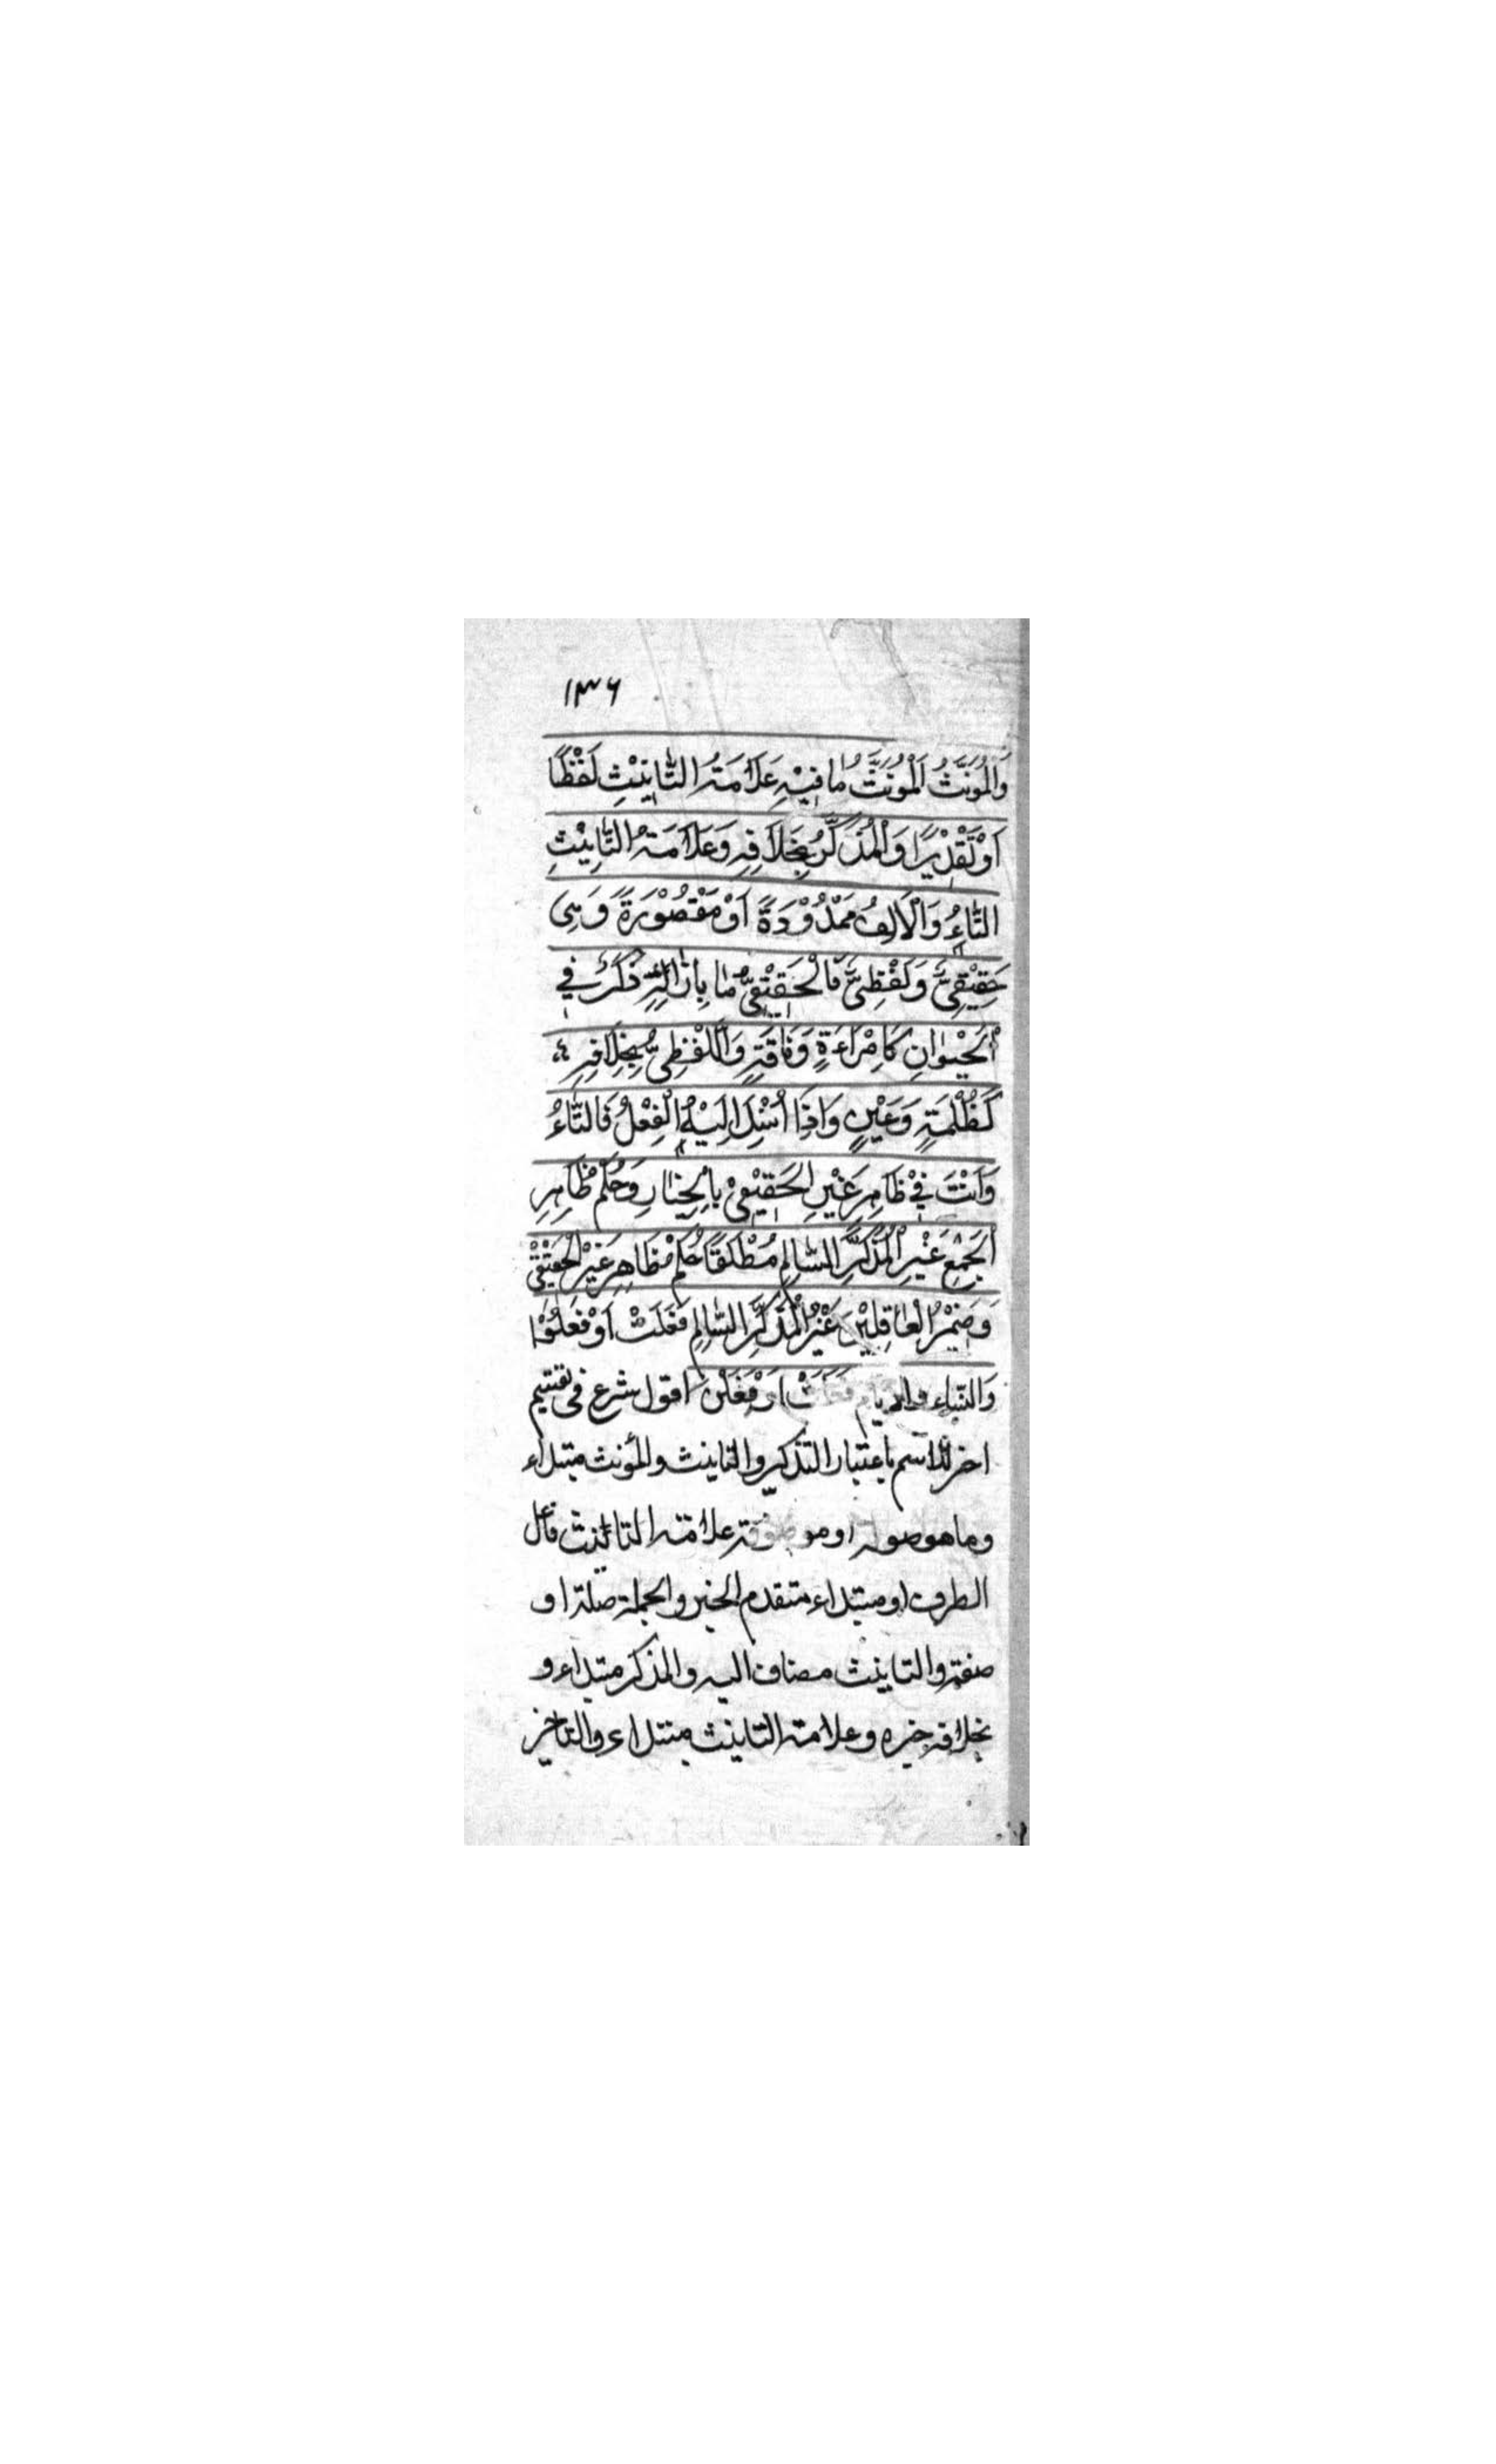 ١٣٦
وَالْمُؤَنَّثُ اَلْمُؤَنَّثُ مَا فِيْهِ عَلَامَةُ التَّانِيْثِ لَفْظًا
اَوْ تَقْدِيْرًا وَالْمُذَكَّرُ بِخَلَافِهِ وَعَلَامَةُ التَّانِيْثِ
التَّاءُ وَالْاَلِفُ مَمْدُوْدَةً اَوْ مَقْصُوْرَةً وَهِىَ
حَقِيْقِىٌّ وَلَفْظِىٌّ فَالْحَقِيْقِىُّ مَا بِاِزَائِهِ ذَكَرٌ فِي
الْحَيْوَانِ كَامْرَاَءَةٍ وَنَاقَةٍ وَاللَّفْظِىُّ بِخِلَافِهِ
كَظُلْمَةٍ وَعَيْنٍ وَاِذَا اُسْنِدَ اِلَيْهِ الْفِعْلُ فَالتَّاءُ
وَاَنْتَ فِيْ ظَاهِرِ غَيْرِ الْحَقِيْقِيْ بِالْخِيَارِ وَحُكْمُ ظَاهِرِ
الْجَمْعِ غَيْرِ الْمُذَكَّرِ السَّالِمِ مُطْلَقًا حُكْمُ ظَاهِرِ غَيْرِ الْحَقِيْقِيْ
وَضَمِيْرُ الْعَاقِلِيْنَ غَيْرُ الْمُذَكَّرِ السَّالِمِ فَعَلَتْ اَوْ فَعَلُوْا
وَالنِّسَاءِ وَالايام فَعَلَتْ اَوْ فَعَلْنَ اقول شرع في تقسيم
اخر للاسم باعتبار التذكير والتانيث والمؤنث مبتداء
وما موصولة او موصوفة علامة التانيث فاعل
الظرف او مبتداء متقدم الخبر والجملة صلة او
صفة والتانيث مضاف اليه والمذكر مبتداء و
بخلافه خبره وعلامة التانيث مبتداء والتا خبر